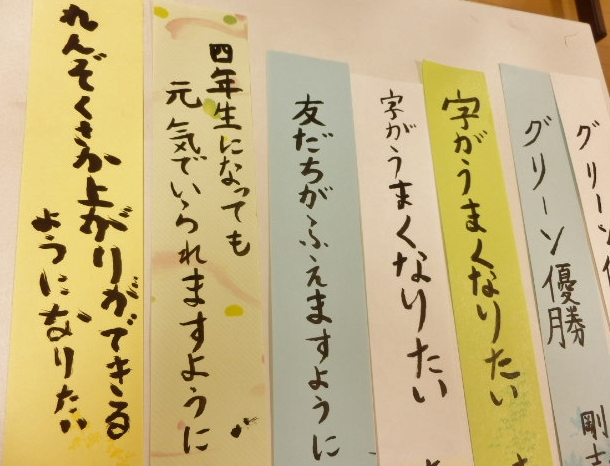 グリーン
剛
グリーン優勝
字がうまくなりたい
字がうまくなりたい
友だちがふえますように
四年生になっても
元気でいられますように
れんぞくさか上がりができる
ようになりたい